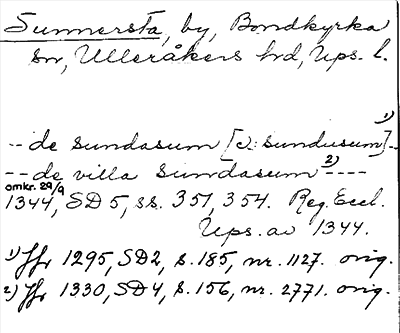 Sunnersta, by, Bondkyrka
sn, Ulleråkers hd, Ups. l.
--de sundasum [ɔ: sundusum]¹⁾--
--de villa sundasum²⁾----
omkr. 29/9
1344, SD 5, ss. 351, 354. Reg. Eccl.
Ups. av 1344.
1) Jfr 1295, SD2, s. 185, nr. 1127. orig.
2) Jfr 1330, SD4, s. 156, nr. 2771. orig.